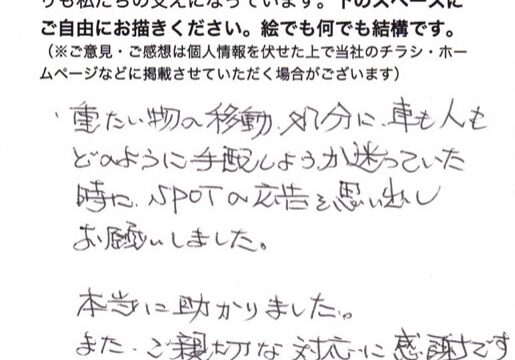 りも私たちの支えになっています。下のスペースに
ご自由にお描きください。絵でも何でも結構です。
（※ご意見・ご感想は個人情報を伏せた上で当社のチラシ・ホー
ムページなどに掲載させていただく場合がございます）
重たい物の移動、処分に、車も人も
どのように手配しようか迷っていた
時に、SPOTの広告を思い出し
お願いしました。
本当に助かりました。
また、ご親切な対応に感謝です